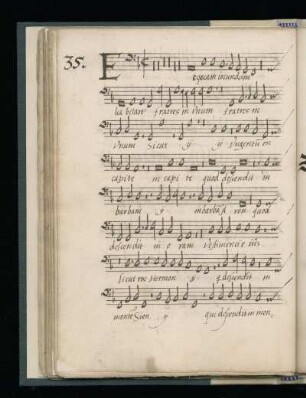 35. E
quam iucundum
habitare fratres in unum fratres in
Unum Sicut ij ungentū in
capite in capi te quod descendit in
barbam ij in barbā ron quod
descendit in o ram vestimenti e ius
Sicut ros Hermon ij q descendit in
monte Sion ij qui descendit in mon.